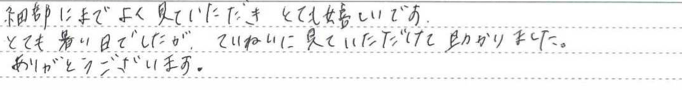 細部にまでよく見ていただきとても嬉しいです。
とても暑い日でしたが、ていねいに見ていただけて助かりました。
ありがとうございます。